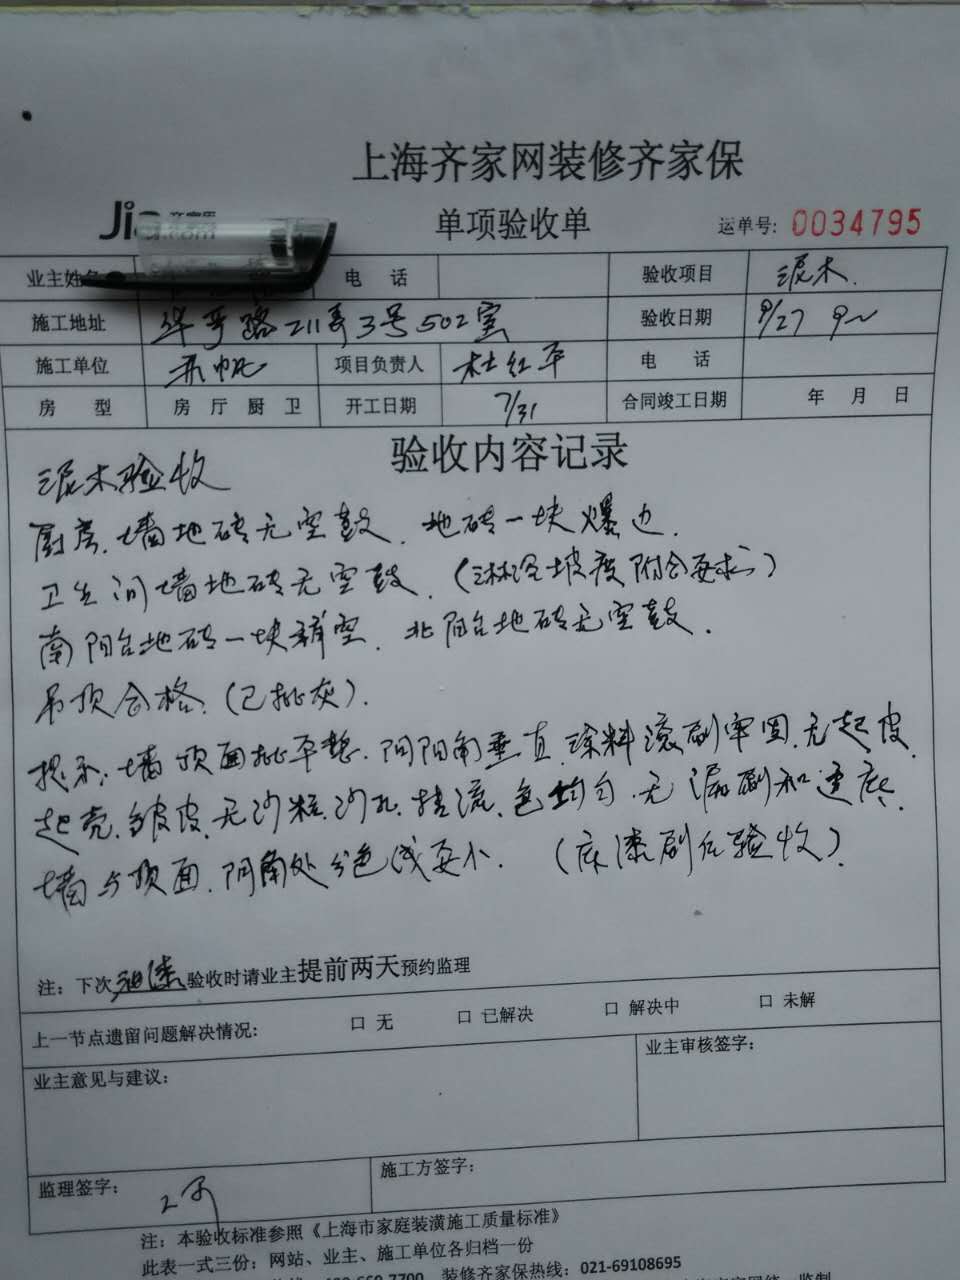 上海齐家网装修齐家保
Jia 齐家网
.com
单项验收单
运单号: 0034795
业主姓名 电 话 验收项目 泥木.
施工地址 211弄3号502室 验收日期 9/27
施工单位 项目负责人 杜红平 电 话
房 型 房 厅 厨 卫 开工日期 7/31 合同竣工日期 年 月 日
验收内容记录
泥木验收
厨房.墙地砖无空鼓.地砖一块爆边.
卫生间墙地砖无空鼓.(淋浴坡度附合要求)
南阳台地砖一块稍空.北阳台地砖无空鼓.
吊顶合格.(已批灰).
提示:墙顶面批平整.阴阳角垂直.涂料滚刷牢固.无起皮.
起壳.皱皮.无沙粒.沙孔.挂流.色均匀.无漏刷和透底.
墙与顶面.阴角处分色线要小.(底漆刷后验收).
注: 下次油漆验收时请业主提前两天预约监理
上一节点遗留问题解决情况: □ 无 □ 已解决 □ 解决中 □ 未解
业主意见与建议: 业主审核签字:
监理签字: 施工方签字:
注: 本验收标准参照《上海市家庭装潢施工质量标准》
此表一式三份: 网站、业主、施工单位各归档一份
装修齐家保热线: 021-69108695